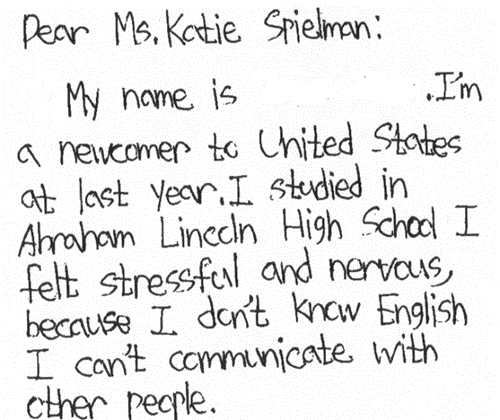 Dear Ms. Katie Spielman:
My name is .I'm
a newcomer to United States
at last year. I studied in
Abraham Lincoln High School I
felt stressful and nervous,
because I don't know English
I can't communicate with
other people.